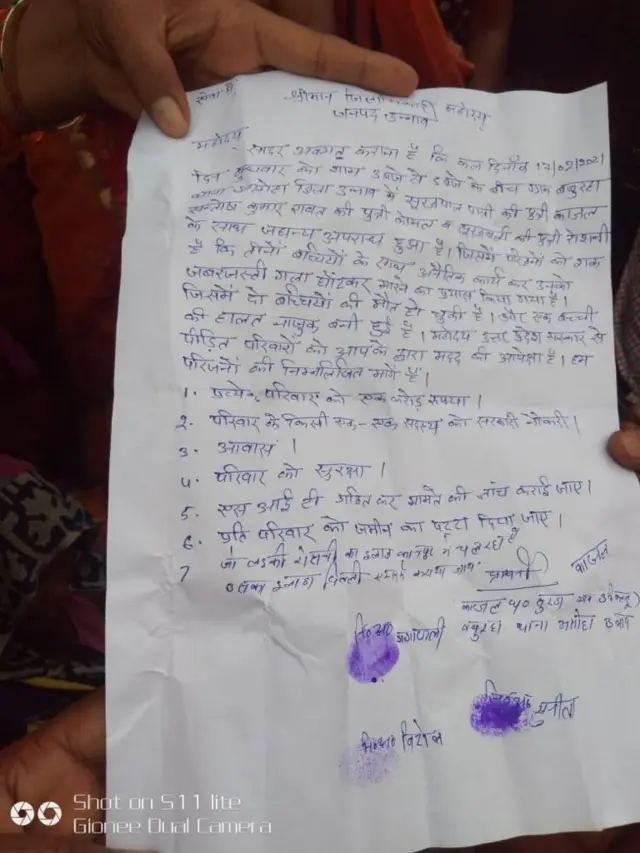 सेवा में,
श्रीमान जिलाधिकारी महोदय
जनपद उन्नाव
महोदय,
सादर अवगत कराना है कि कल दिनाँक 17/02/2021
दिन बुधवार को शाम 3 बजे से 6 बजे के बीच ग्राम बबुरहा
थाना असोहा जिला उन्नाव में सूरजपाल पासी की पुत्री काजल
सन्तोष कुमार रावत की पुत्री कोमल व की पुत्री रोशनी
के साथ जघन्य अपराध हुआ है। जिसमें को शक
है कि तीनों बच्चियों के साथ अनैतिक कार्य कर उनको
जबरजस्ती गला घोंटकर मारने का प्रयास किया गया है।
जिसमें दो बच्चियों की मौत हो चुकी है। और एक बच्ची
की हालत नाजुक बनी हुई है। महोदय उत्तर प्रदेश सरकार से
पीड़ित परिवारों को आपके द्वारा मदद की अपेक्षा है। हम
परिजनों की निम्नलिखित मांगें हैं।
1. प्रत्येक परिवार को एक करोड़ रुपया।
2. परिवार के किसी एक-एक सदस्य को सरकारी नौकरी।
3. आवास।
4. परिवार को सुरक्षा।
5. एस आई टी गठित कर मामले की जांच कराई जाए।
6. प्रति परिवार को जमीन का पट्टा दिया जाए।
7 जो लड़की रोशनी का इलाज कानपुर में चल रहा है
उसका इलाज दिल्ली कराया जाए
प्रार्थी काजल
काजल
बबुरहा थाना असोहा उन्नाव
नि०अं०
नि०अं० सुनीता
नि०अं०
Shot on S11 lite
Gionee Dual Camera